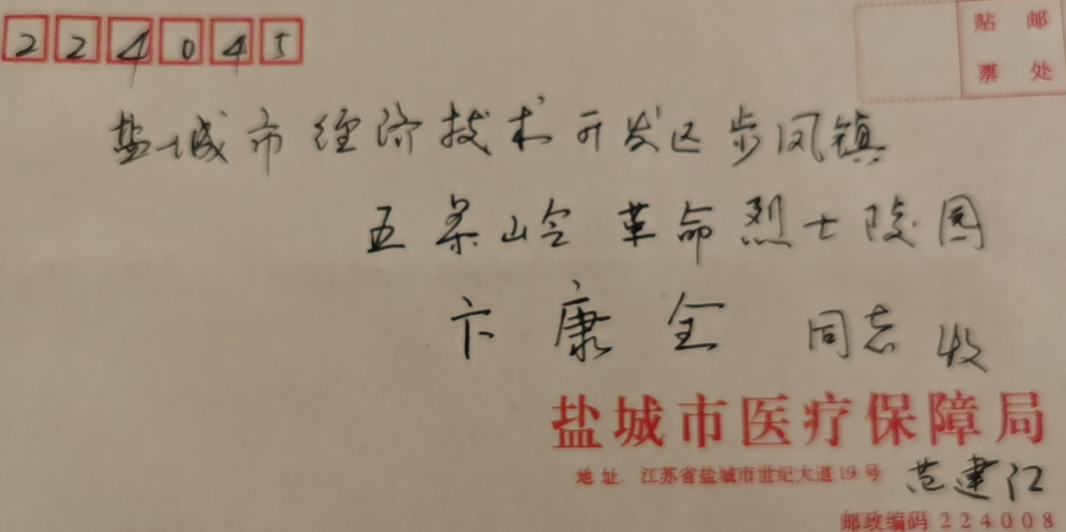 224045
贴 邮
票 处
盐城市经济技术开发区步凤镇
五条岭革命烈士陵园
卞康全 同志 收
盐城市医疗保障局
地址 江苏省盐城市世纪大道19号 范建江
邮政编码 224008